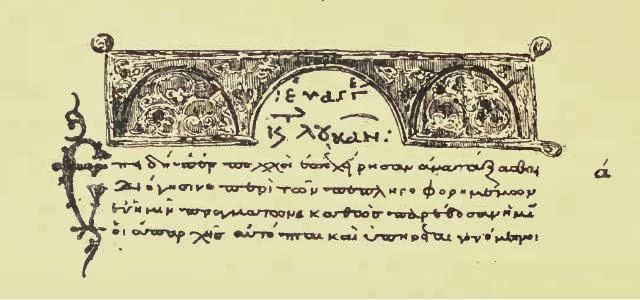 εὐαγγ
κτ λουκᾶν:
Ἐπειδήπερ πολλοὶ ἐπεχείρησαν ἀνατάξασθαι ά
διήγησιν περὶ τῶν πεπληροφορημένων
ἐν ἡμῖν πραγμάτων καθὼς παρέδοσαν ἡμῖ
οἱ ἀπαρχῆς αὐτόπται καὶ ὑπηρέται γενόμενοι